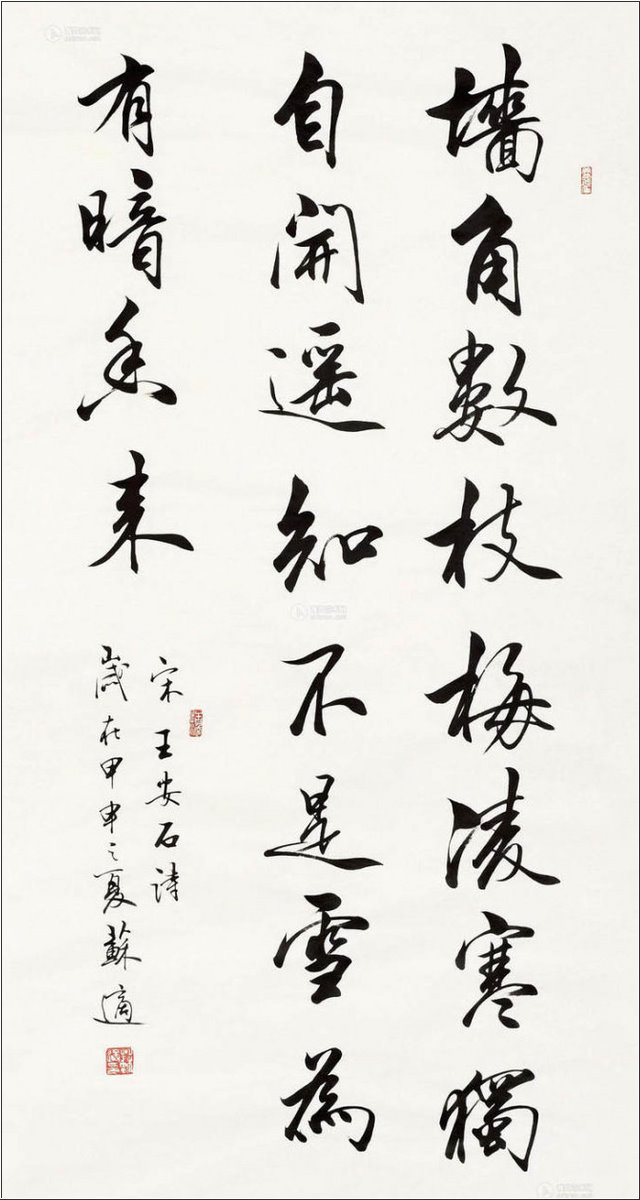 墻角數枝梅凌寒獨
自開遥知不是雪為
有暗香来
宋王安石詩
歲在甲申之夏蘇適